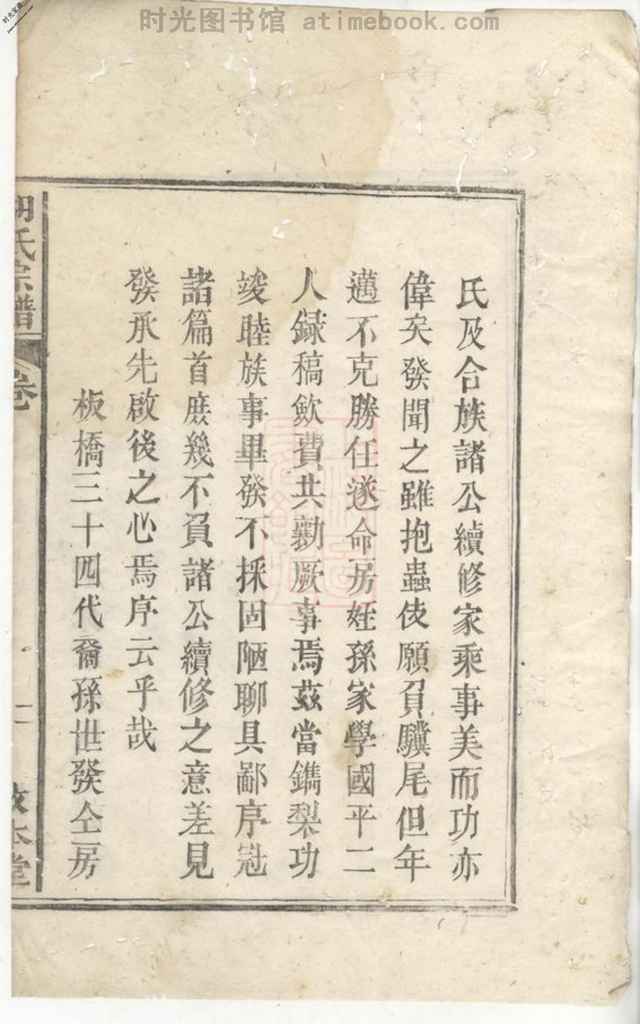 时光图书馆 atimebook.com
氏及合族諸公續修家乘事美而功亦
偉矣發聞之雖抱蟲伎願負驥尾但年
邁不克勝任遂命房姪孫家學國平二
人錄稿歛費共勷厥事焉茲當鐫梨功
竣睦族事畢發不採固陋聊具鄙序冠
諸篇首庶幾不負諸公續修之意差見
發承先啟後之心焉序云乎哉
板橋三十四代裔孫世發仝房
氏宗譜
卷
二
堂